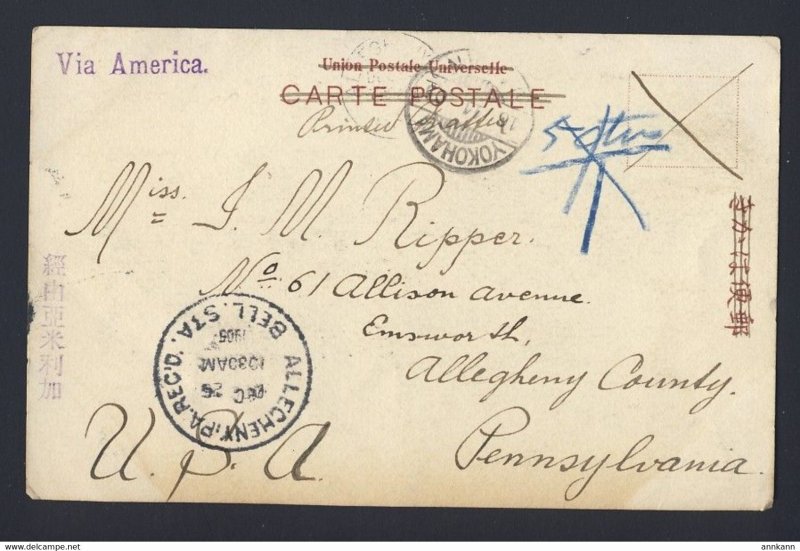 Via America.
Union Postale Universelle
CARTE POSTALE
Printed Matter
YOKOHAMA
Miss. I. M. Ripper.
No. 61 Allison Avenue.
Emsworth,
Allegheny County.
Pennsylvania.
U.S.A.
きがは便郵
經由亞米利加
ALLEGHENY, PA. REC'D.
BELL. STA.
1905
1030AM
DEC 26
www.delcampe.net
annkann